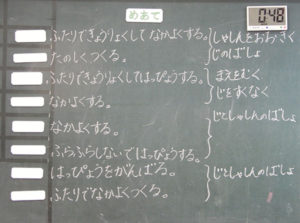 めあて
048
ふたりできょうりょくしてなかよくする。
たのしくつくる。
ふたりできょうりょくしてはっぴょうする。
なかよくする。
なかよくする。
ふらふらしないではっぴょうする。
はっぴょうをがんばる。
ふたりでなかよくつくる。
しゃしんをおおきく
じのばしょ
まえをむく
じをすくなく
じとしゃしんのばしょ
じとしゃしんのばしょ